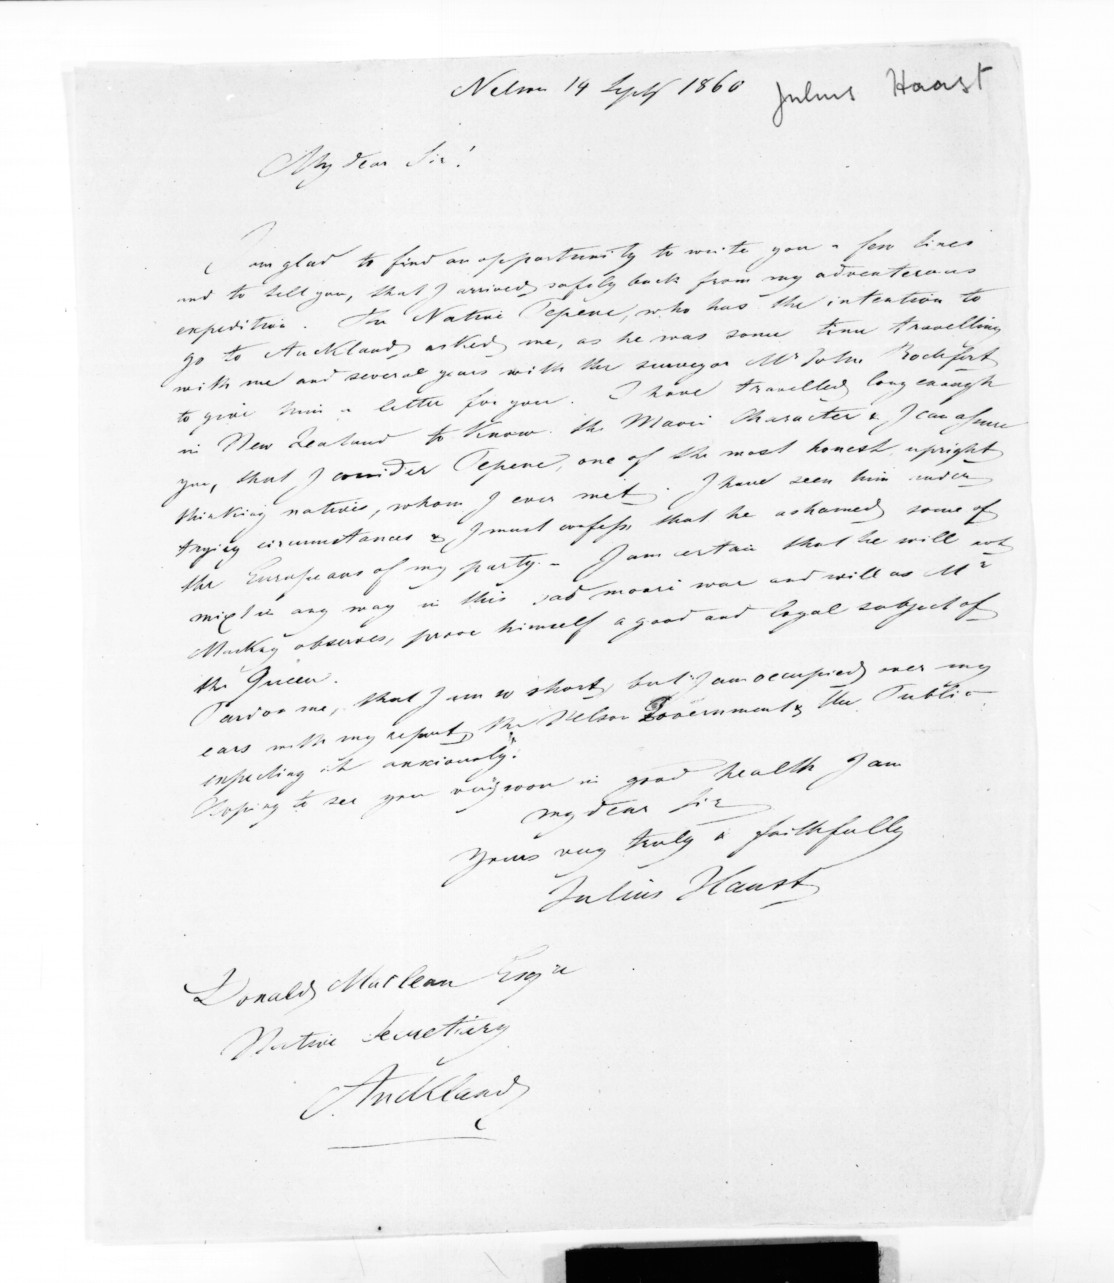 Nelson 14 Septbr 1860
Julius Haast
My dear Sir!
I am glad to find an opportunity to write you a few lines
and to tell you, that I arrived safely back from my adventerous
expedition. The Native Tepene, who has the intention to
go to Auckland asked me, as he was some time travelling
with me and several years with the surveyor Mr John Rochfort
to give him a letter for you. I have travelled long enough
in New Zealand to know the Maori Character & I can assure
you, that I consider Tepene, one of the most honest, upright
thinking natives, whom I ever met. I have seen him under
trying circumstances & I must confess that he ashamed some of
the Europeans of my party. - I am certain that he will not
mix in any way in this sad maori war and will as Mr
Mackay observes, prove himself a good and loyal subject of
the Queen.
Pardon me, that I am so short, but I am occupied over my
ears with my report, the Nelson Government & the Public
expecting it anxiously.
Hoping to see you very soon in good health I am
my dear Sir
Yours very truly & faithfully
Julius Haast
Donald MacLean Esqre
Native Secretiery
Auckland